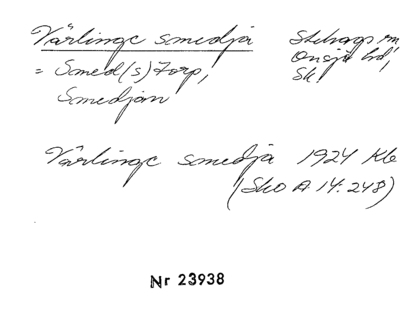 Vårlings smedja Stehags sn
= Smed(s)torp, Onsjö hd,
Smedjan Sk.
Vårlings smedja 1924 Kb
(Sko A. 14: 248)
Nr 23938